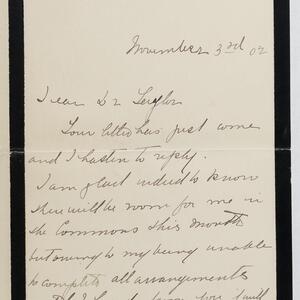 November 3rd 02
Dear Dr Taylor
Your letter has just come
and I hasten to reply.
I am glad indeed to know
there will be room for me in
the Commons this month
but owing to my being unable
to complete all arrangements
I will